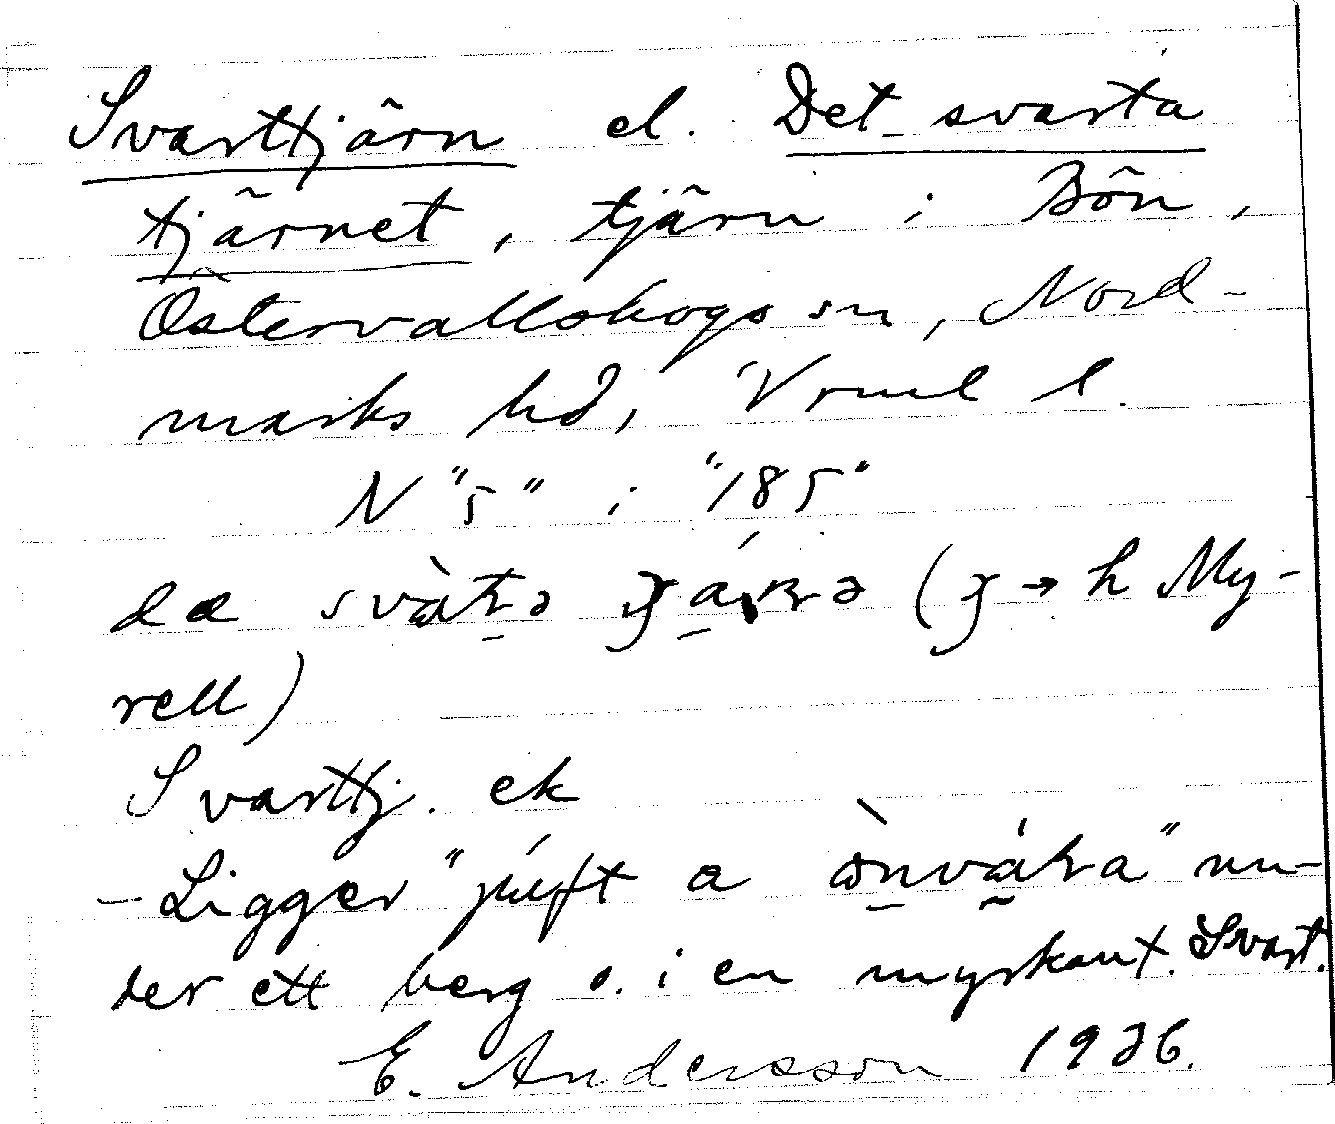 Svarttjärn el. Det svarta
tjärnet, tjärn i Bön,
Östervallskogs sn, Nord-
marks hd, Vrml l.
N "5" i "185"
(→ h My-
rell)
Svarttj. ek
- Ligger "
un-
der ett berg o. i en myrkant. Svart.
E. Andersson 1936.